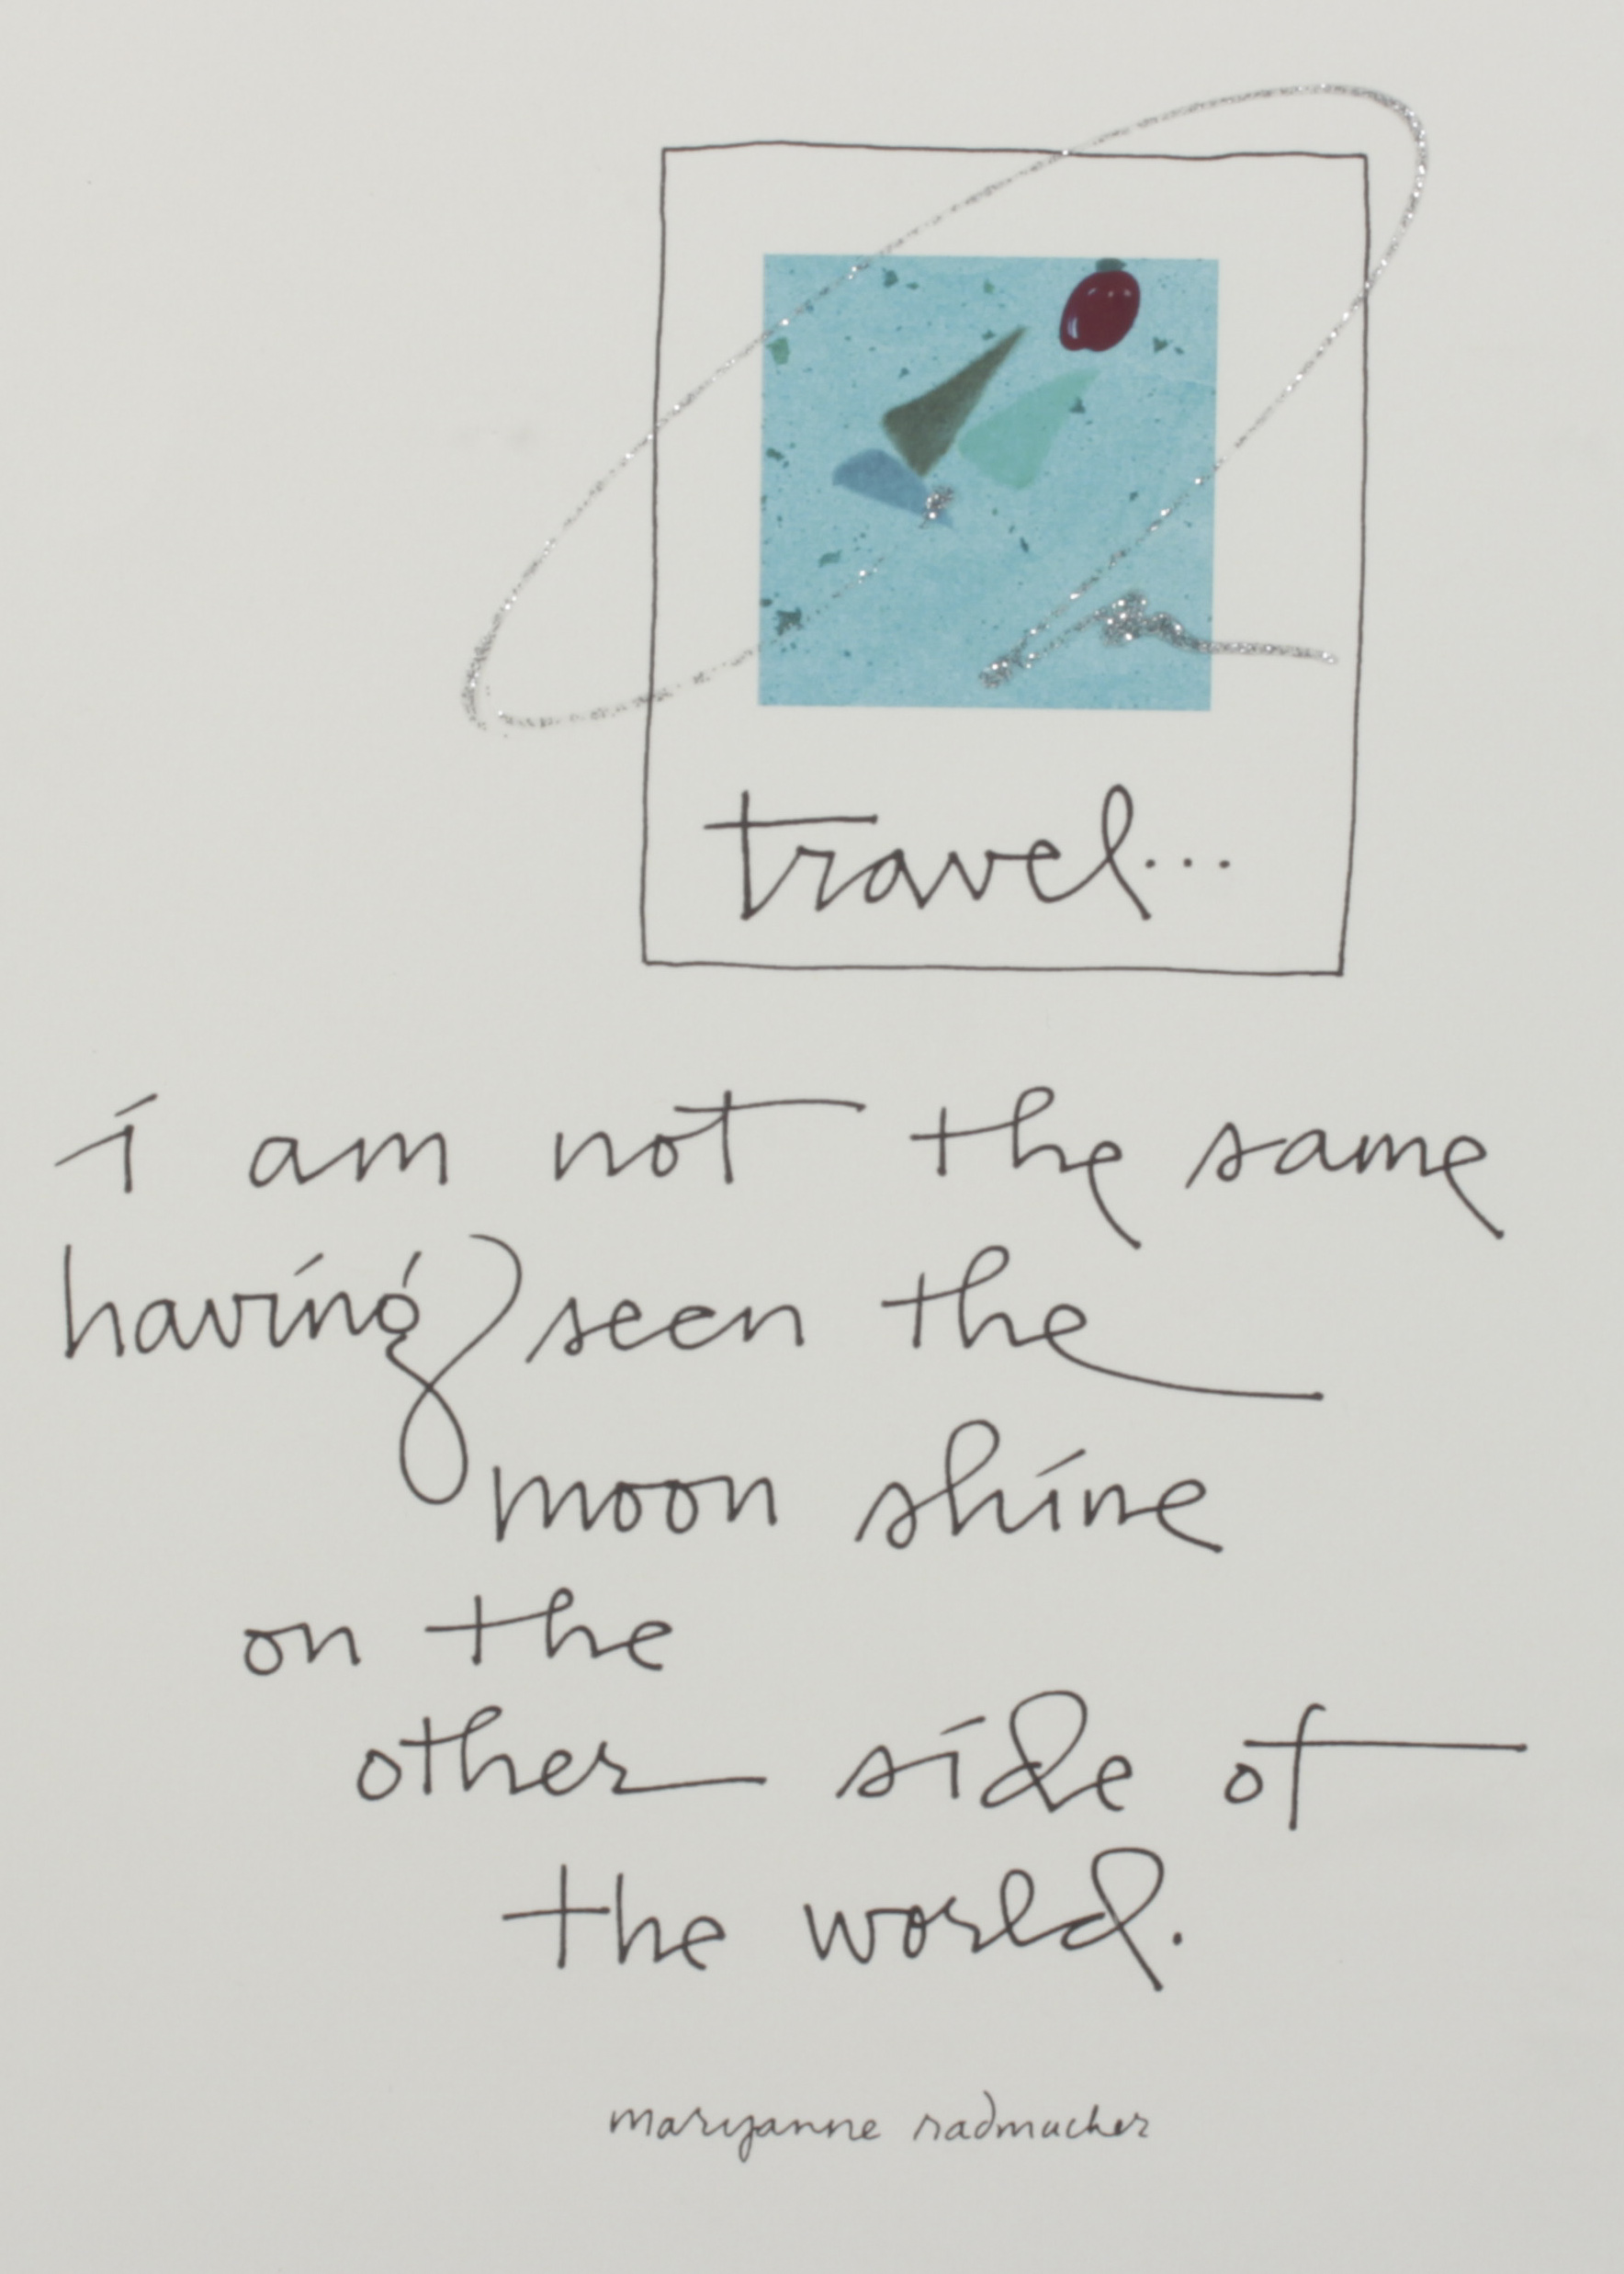 travel...
i am not the same
having seen the
moon shine
on the
other side of
the world.
maryanne radmacher